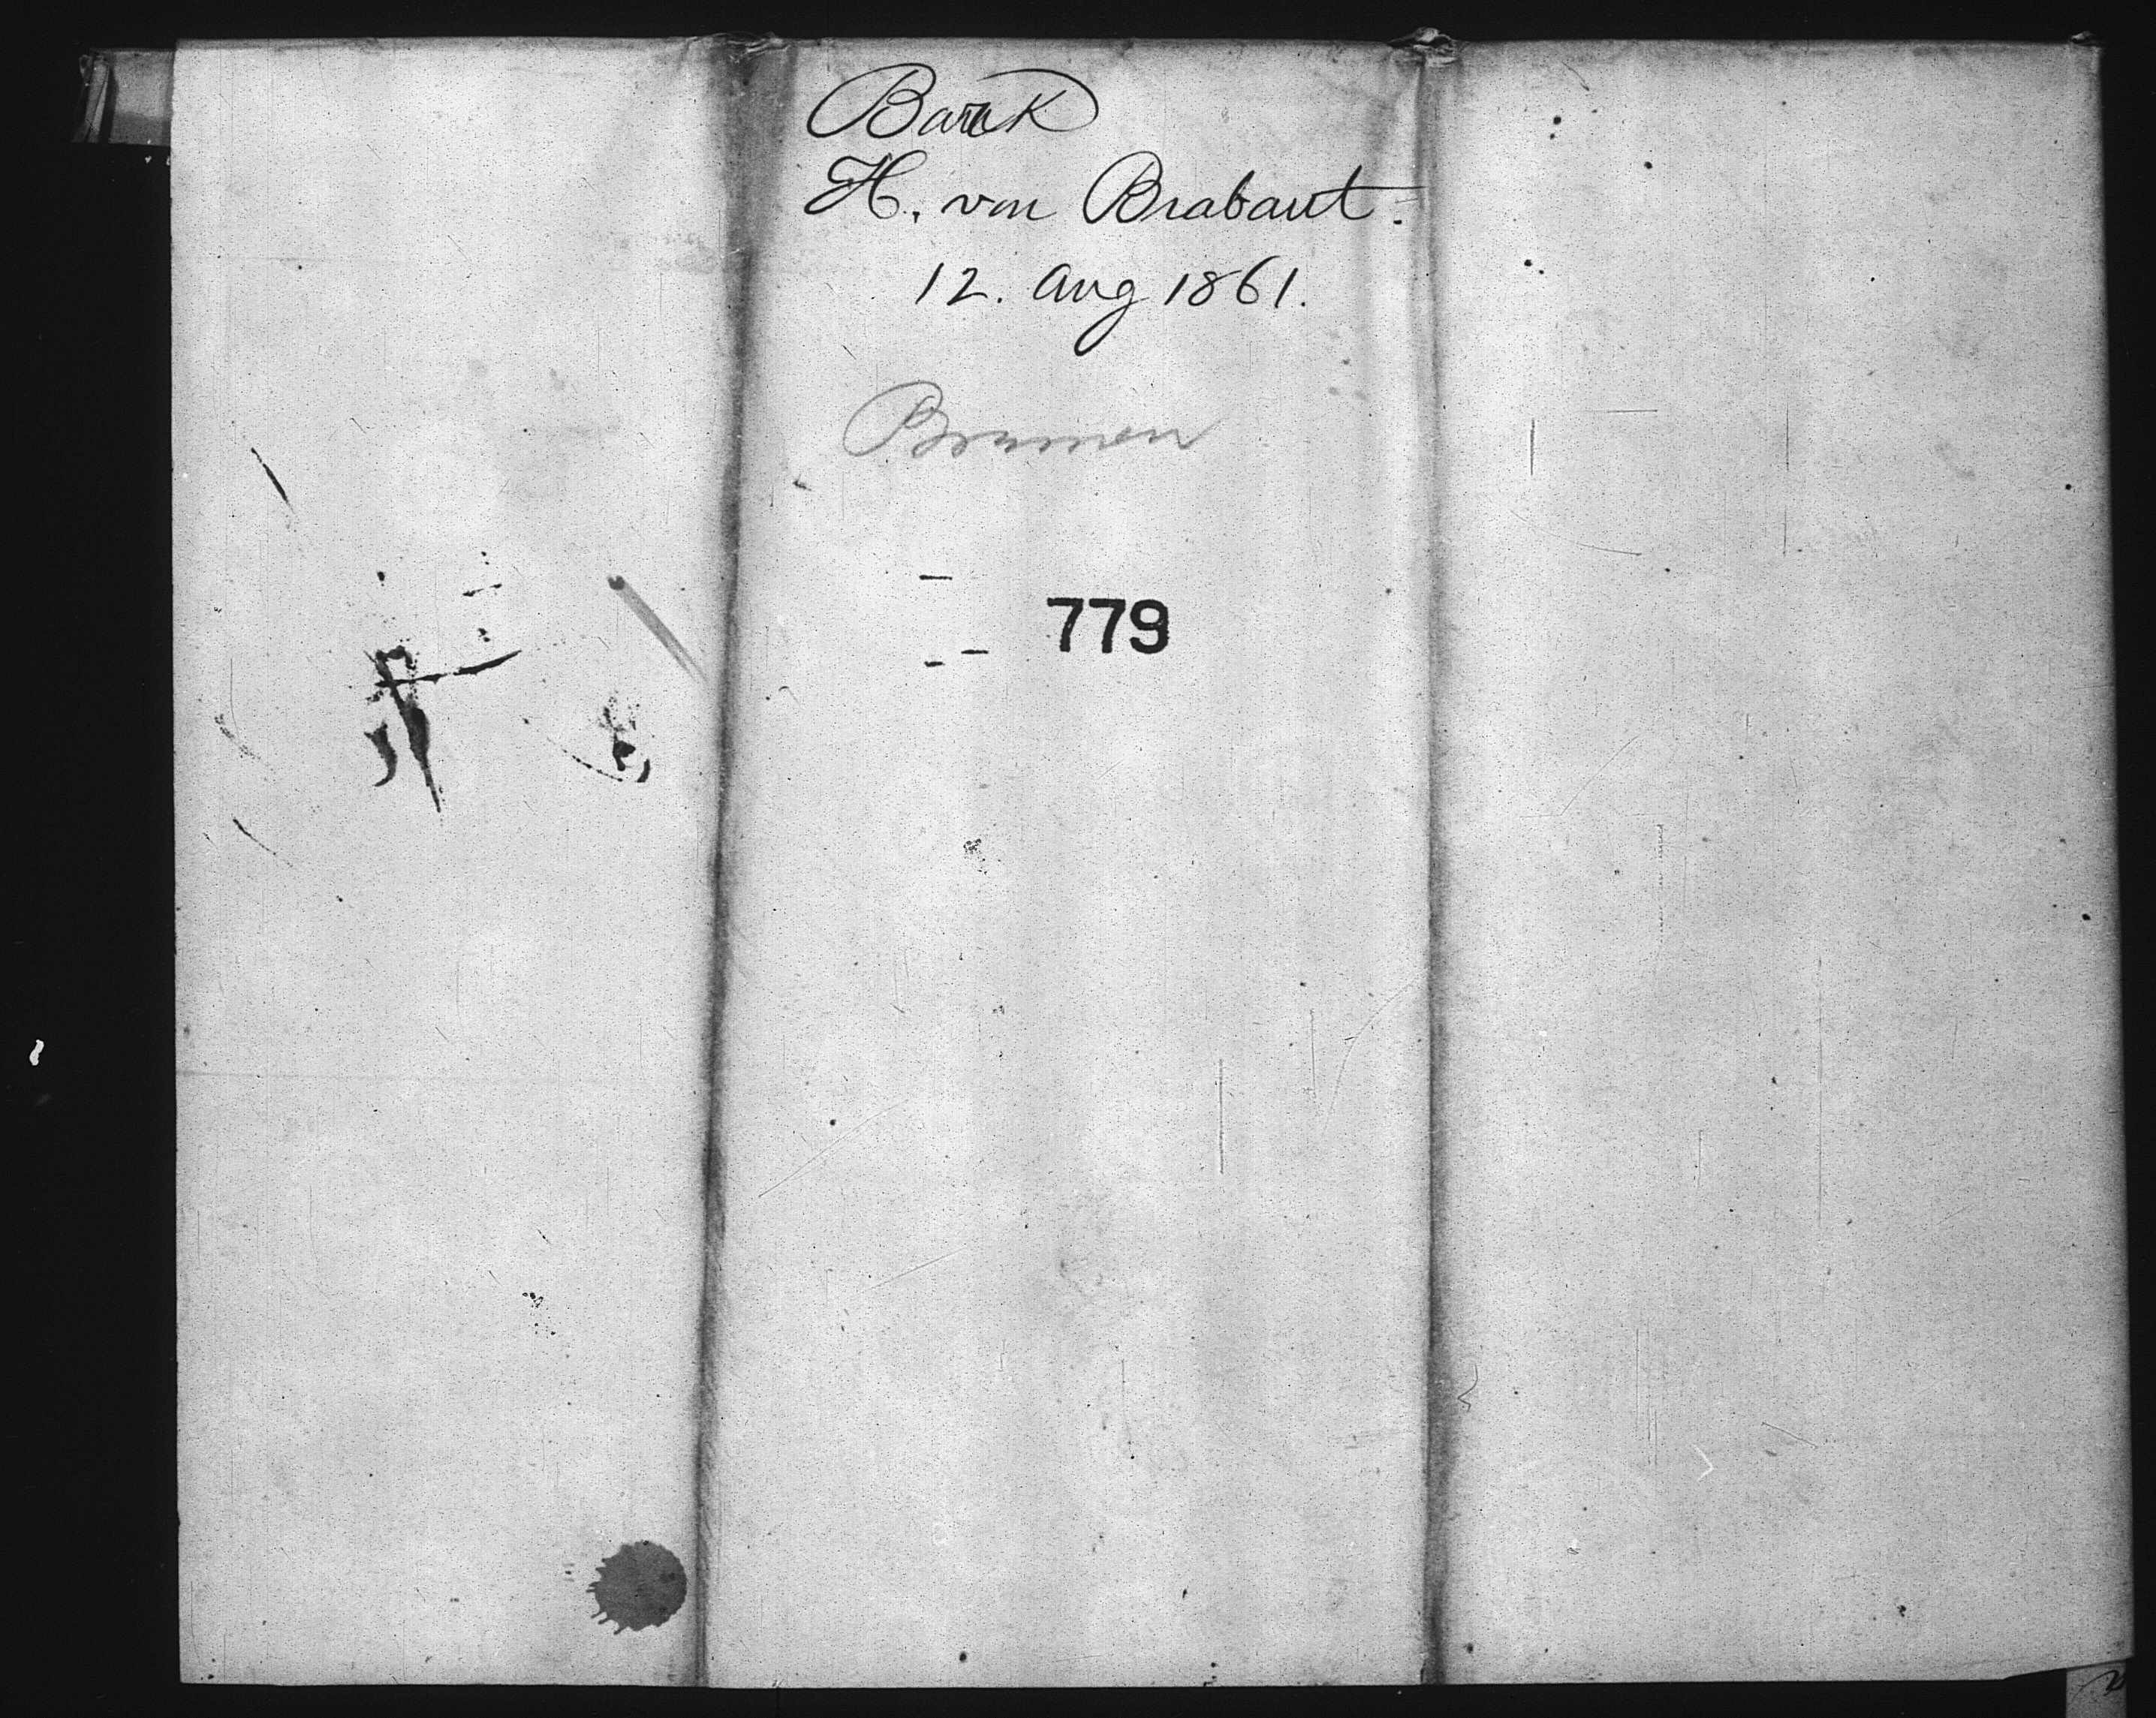 Bark
H. von Brabant.
12. Aug 1861.
Bremen
779